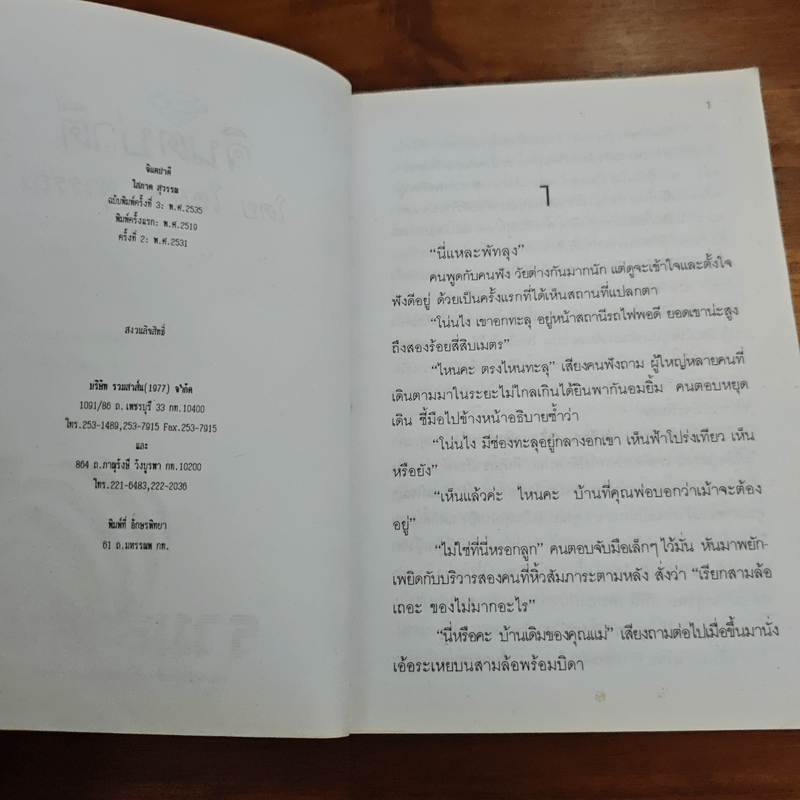 จินตปาตี
โสภาค สุวรรณ
ฉบับพิมพ์ครั้งที่ 3: พ.ศ.2535
พิมพ์ครั้งแรก: พ.ศ.2519
ครั้งที่ 2: พ.ศ.2531
สงวนลิขสิทธิ์
บริษัท รวมสาส์น(1977) จำกัด
1091/86 ถ.เพชรบุรี 33 กท.10400
โทร.253-1489,253-7915 Fax.253-7915
และ
864 ถ.ภาณุรังษี วังบูรพา กท.10200
โทร.221-6483,222-2036
พิมพ์ที่ อักษรพิทยา
61 ถ.มหรรณพ กท.
1
ๅ
“นี่แหละพัทลุง”
คนพูดกับคนฟัง วัยต่างกันมากนัก แต่ดูจะเข้าใจและตั้งใจ
ฟังดีอยู่ ด้วยเป็นครั้งแรกที่ได้เห็นสถานที่แปลกตา
“โน่นไง เขาอกทะลุ อยู่หน้าสถานีรถไฟพอดี ยอดเขาน่ะสูง
ถึงสองร้อยสี่สิบเมตร”
“ไหนคะ ตรงไหนทะลุ” เสียงคนฟังถาม ผู้ใหญ่หลายคนที่
เดินตามมาในระยะไม่ไกลเกินได้ยินพากันอมยิ้ม คนตอบหยุด
เดิน ชี้มือไปข้างหน้าอธิบายซ้ำว่า
“โน่นไง มีช่องทะลุอยู่กลางอกเขา เห็นฟ้าโปร่งเทียว เห็น
หรือยัง”
“เห็นแล้วค่ะ ไหนคะ บ้านที่คุณพ่อบอกว่าเม้าจะต้อง
อยู่”
“ไม่ใช่ที่นี่หรอกลูก” คนตอบจับมือเล็กๆ ไว้มั่น หันมาพยัก-
เพยิดกับบริวารสองคนที่หิ้วสัมภาระตามหลัง สั่งว่า “เรียกสามล้อ
เถอะ ของไม่มากอะไร”
“นี่หรือคะ บ้านเดิมของคุณแม่” เสียงถามต่อไปเมื่อขึ้นมานั่ง
เอ้อระเหยบนสามล้อพร้อมบิดา